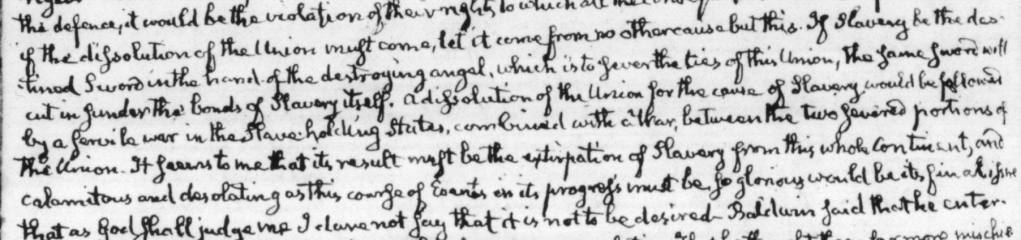 this defence, it would be the violation of their rights to which all the
if the dissolution of the Union must come, let it come from no other cause but this. If Slavery be the des-
tined Sword in the hand of the destroying angel, which is to sever the ties of this Union, the same sword will
cut in sunder the bonds of Slavery itself. A dissolution of the Union for the cause of Slavery would be followed
by a servile war in the Slave-holding States, combined with a War, between the two severed portions of
the Union. It seems to me that its result must be the extirpation of Slavery from this whole Continent, and
calamitous and desolating as this course of Events in its progress must be, so glorious would be its final issue
that as God shall judge me I dare not say that it is not to be desired - Baldwin said that he enter-
more mischie